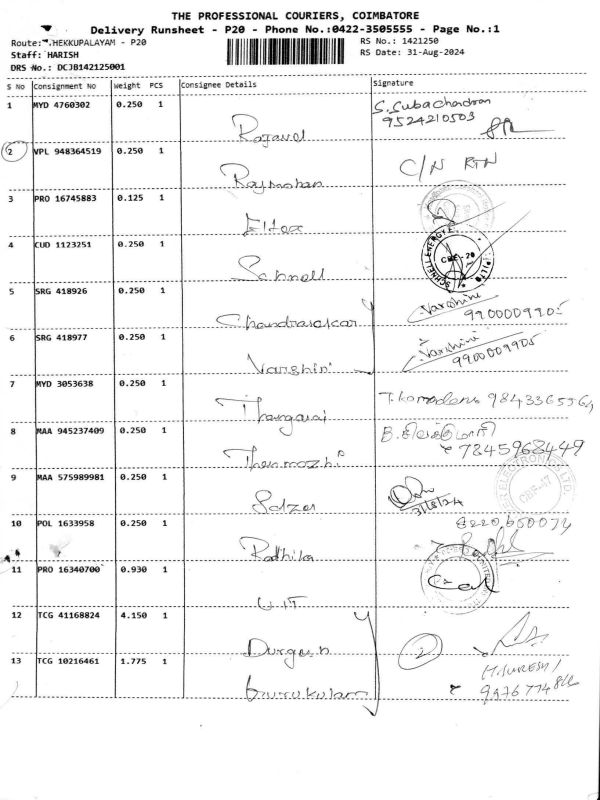 THE PROFESSIONAL COURIERS, COIMBATORE
Delivery Runsheet - P20 - Phone No.:0422-3505555 - Page No.:1
Route: HEKKUPALAYAM - P20
RS No.: 1421250
Staff: HARISH
RS Date: 31-Aug-2024
DRS No.: DCJB142125001
S No Consignment No Weight PCS Consignee Details Signature
1 MYD 4760302 0.250 1 S. Subachandran
9524210503
2 VPL 948364519 0.250 1 Rajmohan C/N RTN
3 PRO 16745883 0.125 1
4 CUD 1123251 0.250 1 Schnell
SCHNELL ENERGY CBE-20
5 SRG 418926 0.250 1 Chandrasekar Varshini
9900009905
6 SRG 418977 0.250 1 Varshini Varshini
9900009905
7 MYD 3053638 0.250 1 Thangaraj
8 MAA 945237409 0.250 1 Thenmozhi
7845968449
9 MAA 575989981 0.250 1
31/8/24
10 POL 1633958 0.250 1 Radhika
11 PRO 16340700 0.930 1
12 TCG 41168824 4.150 1 Durgesh 2
13 TCG 10216461 1.775 1 Gurukulam M.SURESH/